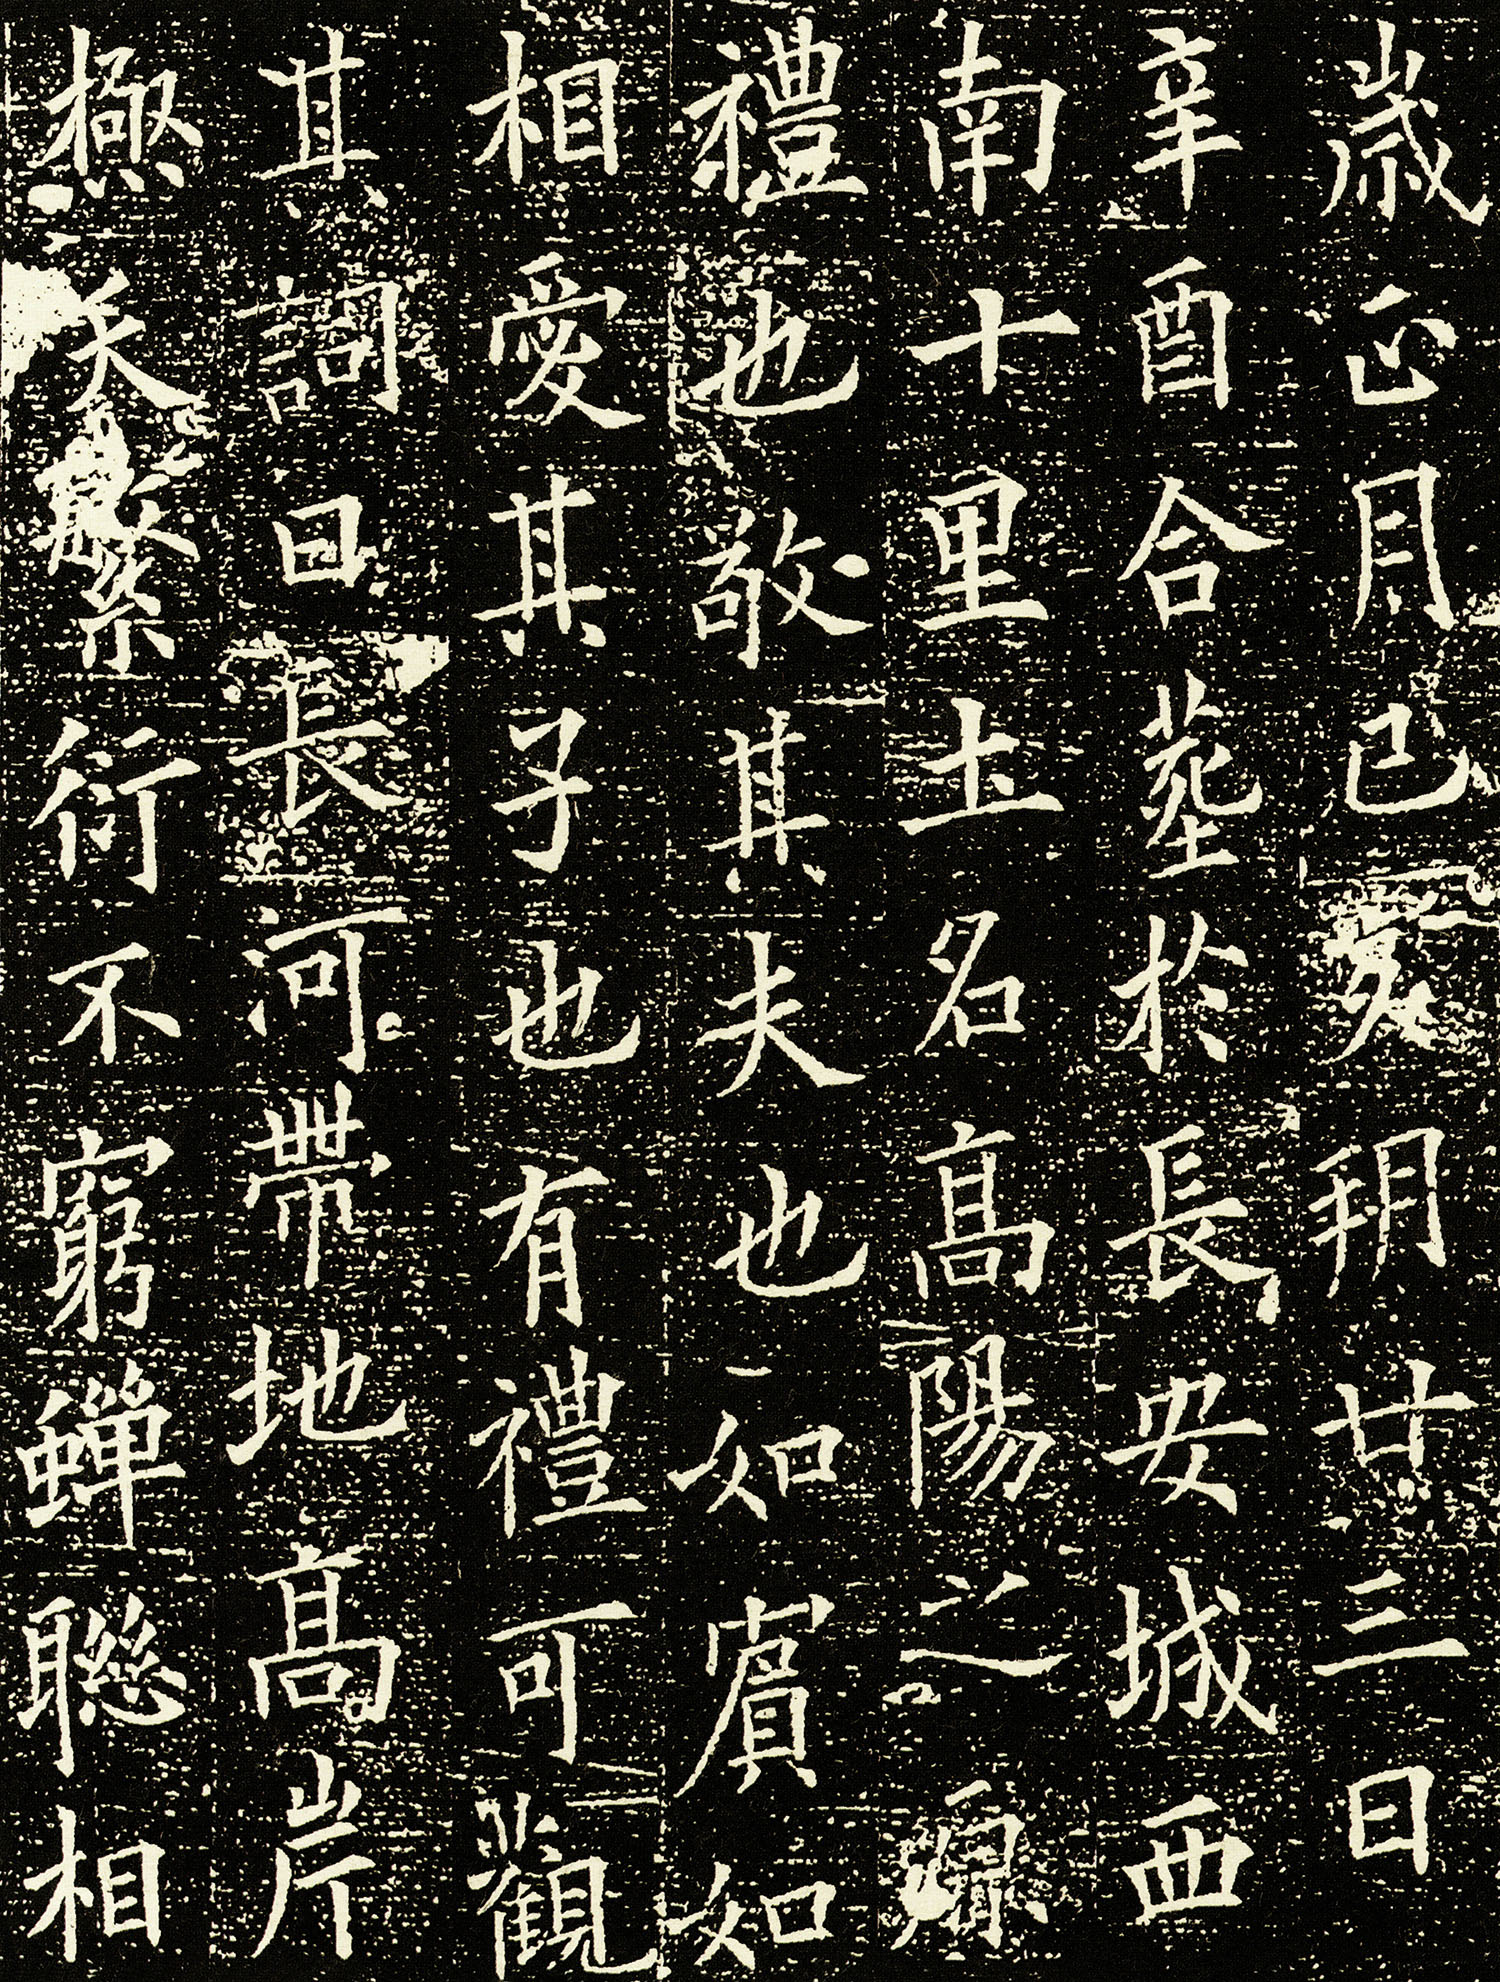 歲正月己亥朔廿三日
辛酉合葬於長安城西
南十里土名高陽之原
禮也敬其夫也如賓如
相愛其子也有禮可觀
其詞曰長河帶地高岸
極天繁衍不窮蟬聯相